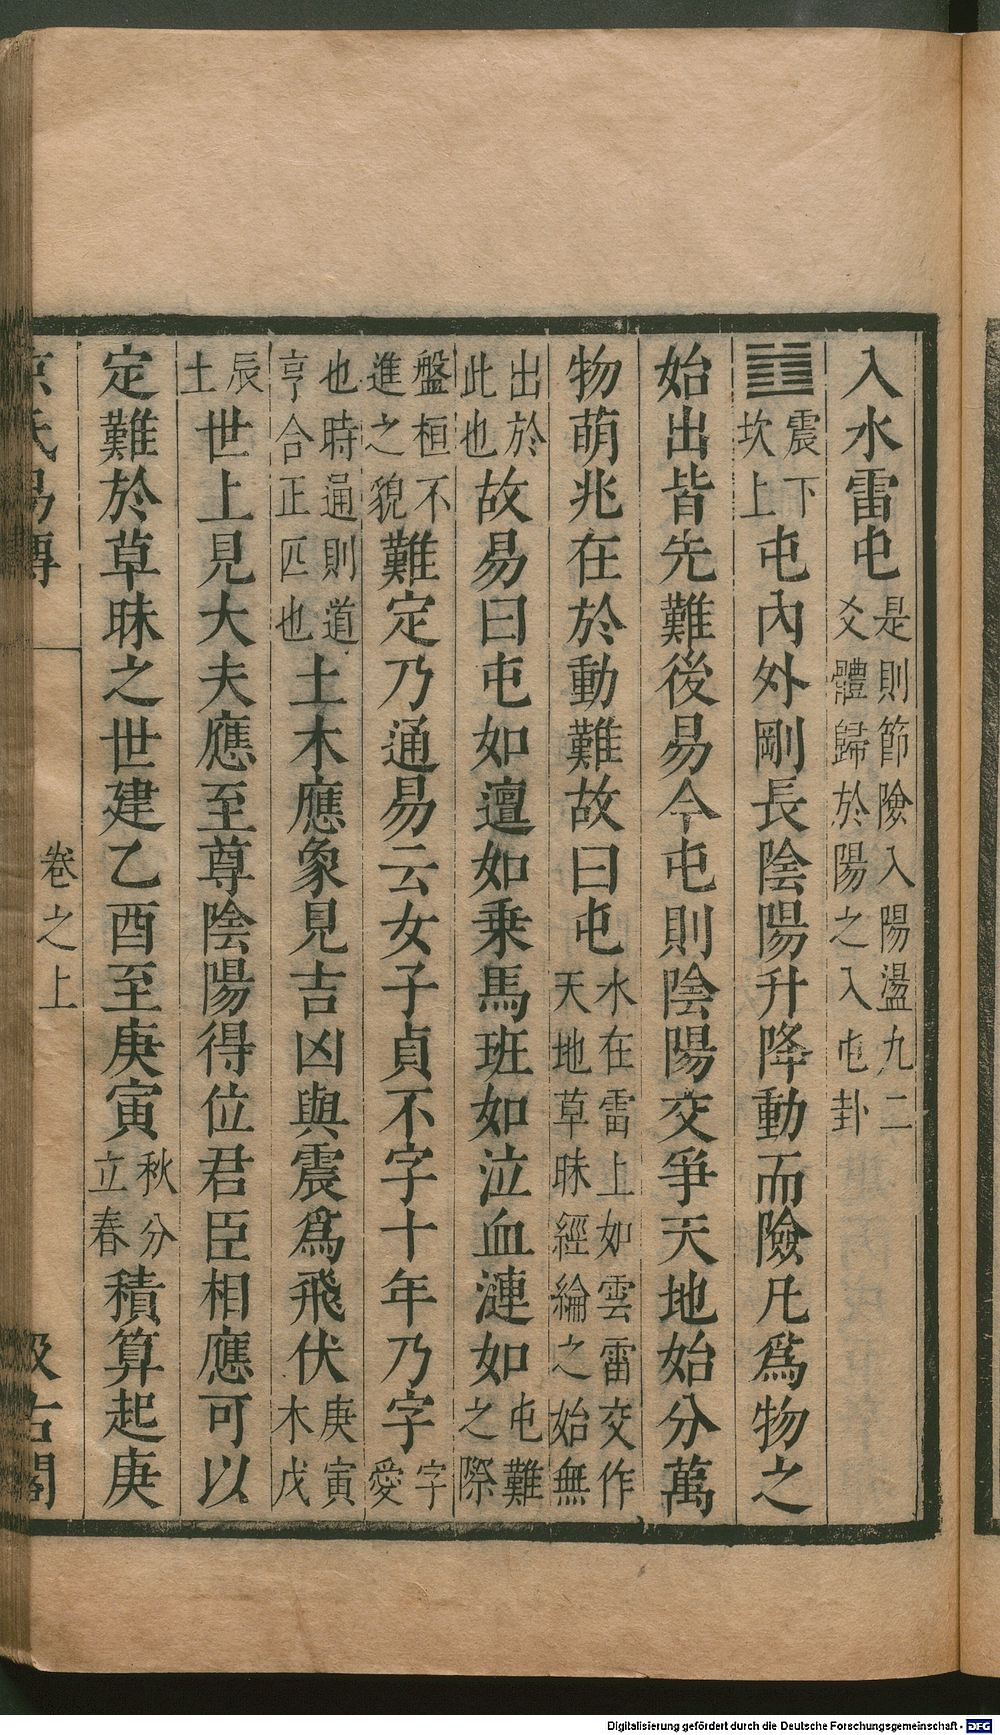 入水雷屯是則節險入陽盪九二爻體歸於陽之入屯卦
䷂震下坎上屯內外剛長陰陽升降動而險凡爲物之
始出皆先難後易今屯則陰陽交爭天地始分萬
物萌兆在於動難故曰屯水在雷上如雲雷交作天地草昧經綸之始無
出於此也故易曰屯如邅如乗馬班如泣血漣如屯難之際
盤桓不進之貌難定乃通易云女子貞不字十年乃字字愛
也時通則道亨合正匹也土木應象見吉凶與震爲飛伏庚寅木戊
辰土世上見大夫應至尊陰陽得位君臣相應可以
定難於草昧之世建乙酉至庚寅秋分立春積算起庚
京氏易傳 卷之上 汲古閣
Digitalisierung gefördert durch die Deutsche Forschungsgemeinschaft - DFG